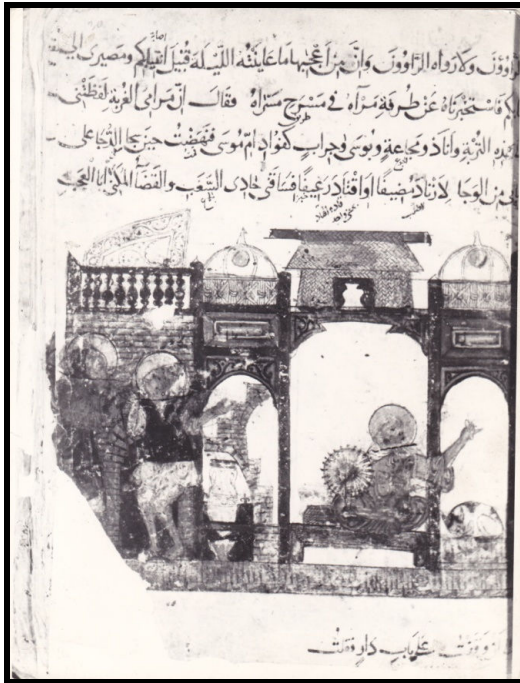 ولا رواه الراوون وانّ من أعجبها ما عاينته الليلة قبيل انتيابكم ومصيري الى
فاستخبرناه عن طرفة مرآه في مسرح مسراه فقال انّ مرامي الغربة لفظتني
هذه التربة وانا ذو مجاعةٍ وبوسى وجراب كفؤاد امّ موسى فنهضت حين سجا الدجا على
من الوجا لارتاد مضيفًا او اقتاد رغيفًا فساقني حادي السغب والقضآ المكنى ابا العجب
وقفت على باب دار فقلت